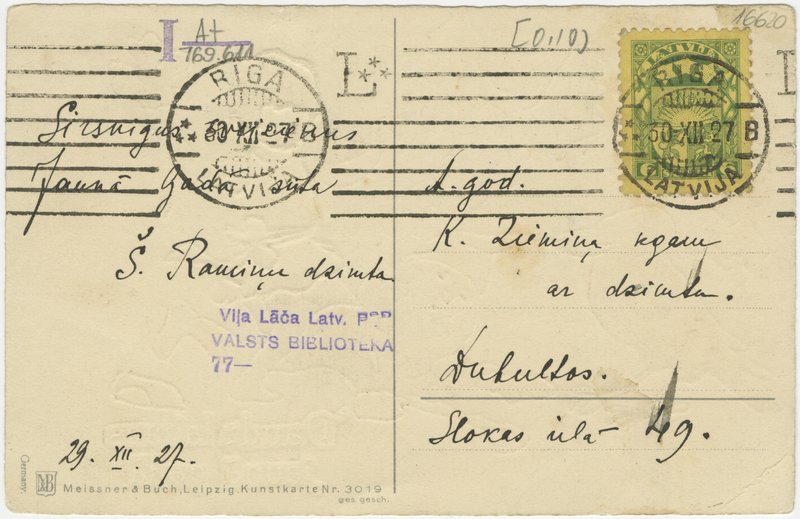 I A+
169.611
[0,10)
16620
L
LATVIJA
RIGA
30·XII·27 B
LATVIJA
RIGA
30·XII·27 B
LATVIJA
Sirsnīgus sveicienus
Jaunā Gadā sūta
Š. Ramiņu dzimta
29. XII. 27.
Viļa Lāča Latv. PSR
VALSTS BIBLIOTEKA
77—
A. god.
K. Ziemiņa kgam
ar dzimtu.
Dubultos.
Slokas ielā 49.
Germany
MB
Meissner & Buch, Leipzig. Kunstkarte Nr. 3019
ges. gesch.